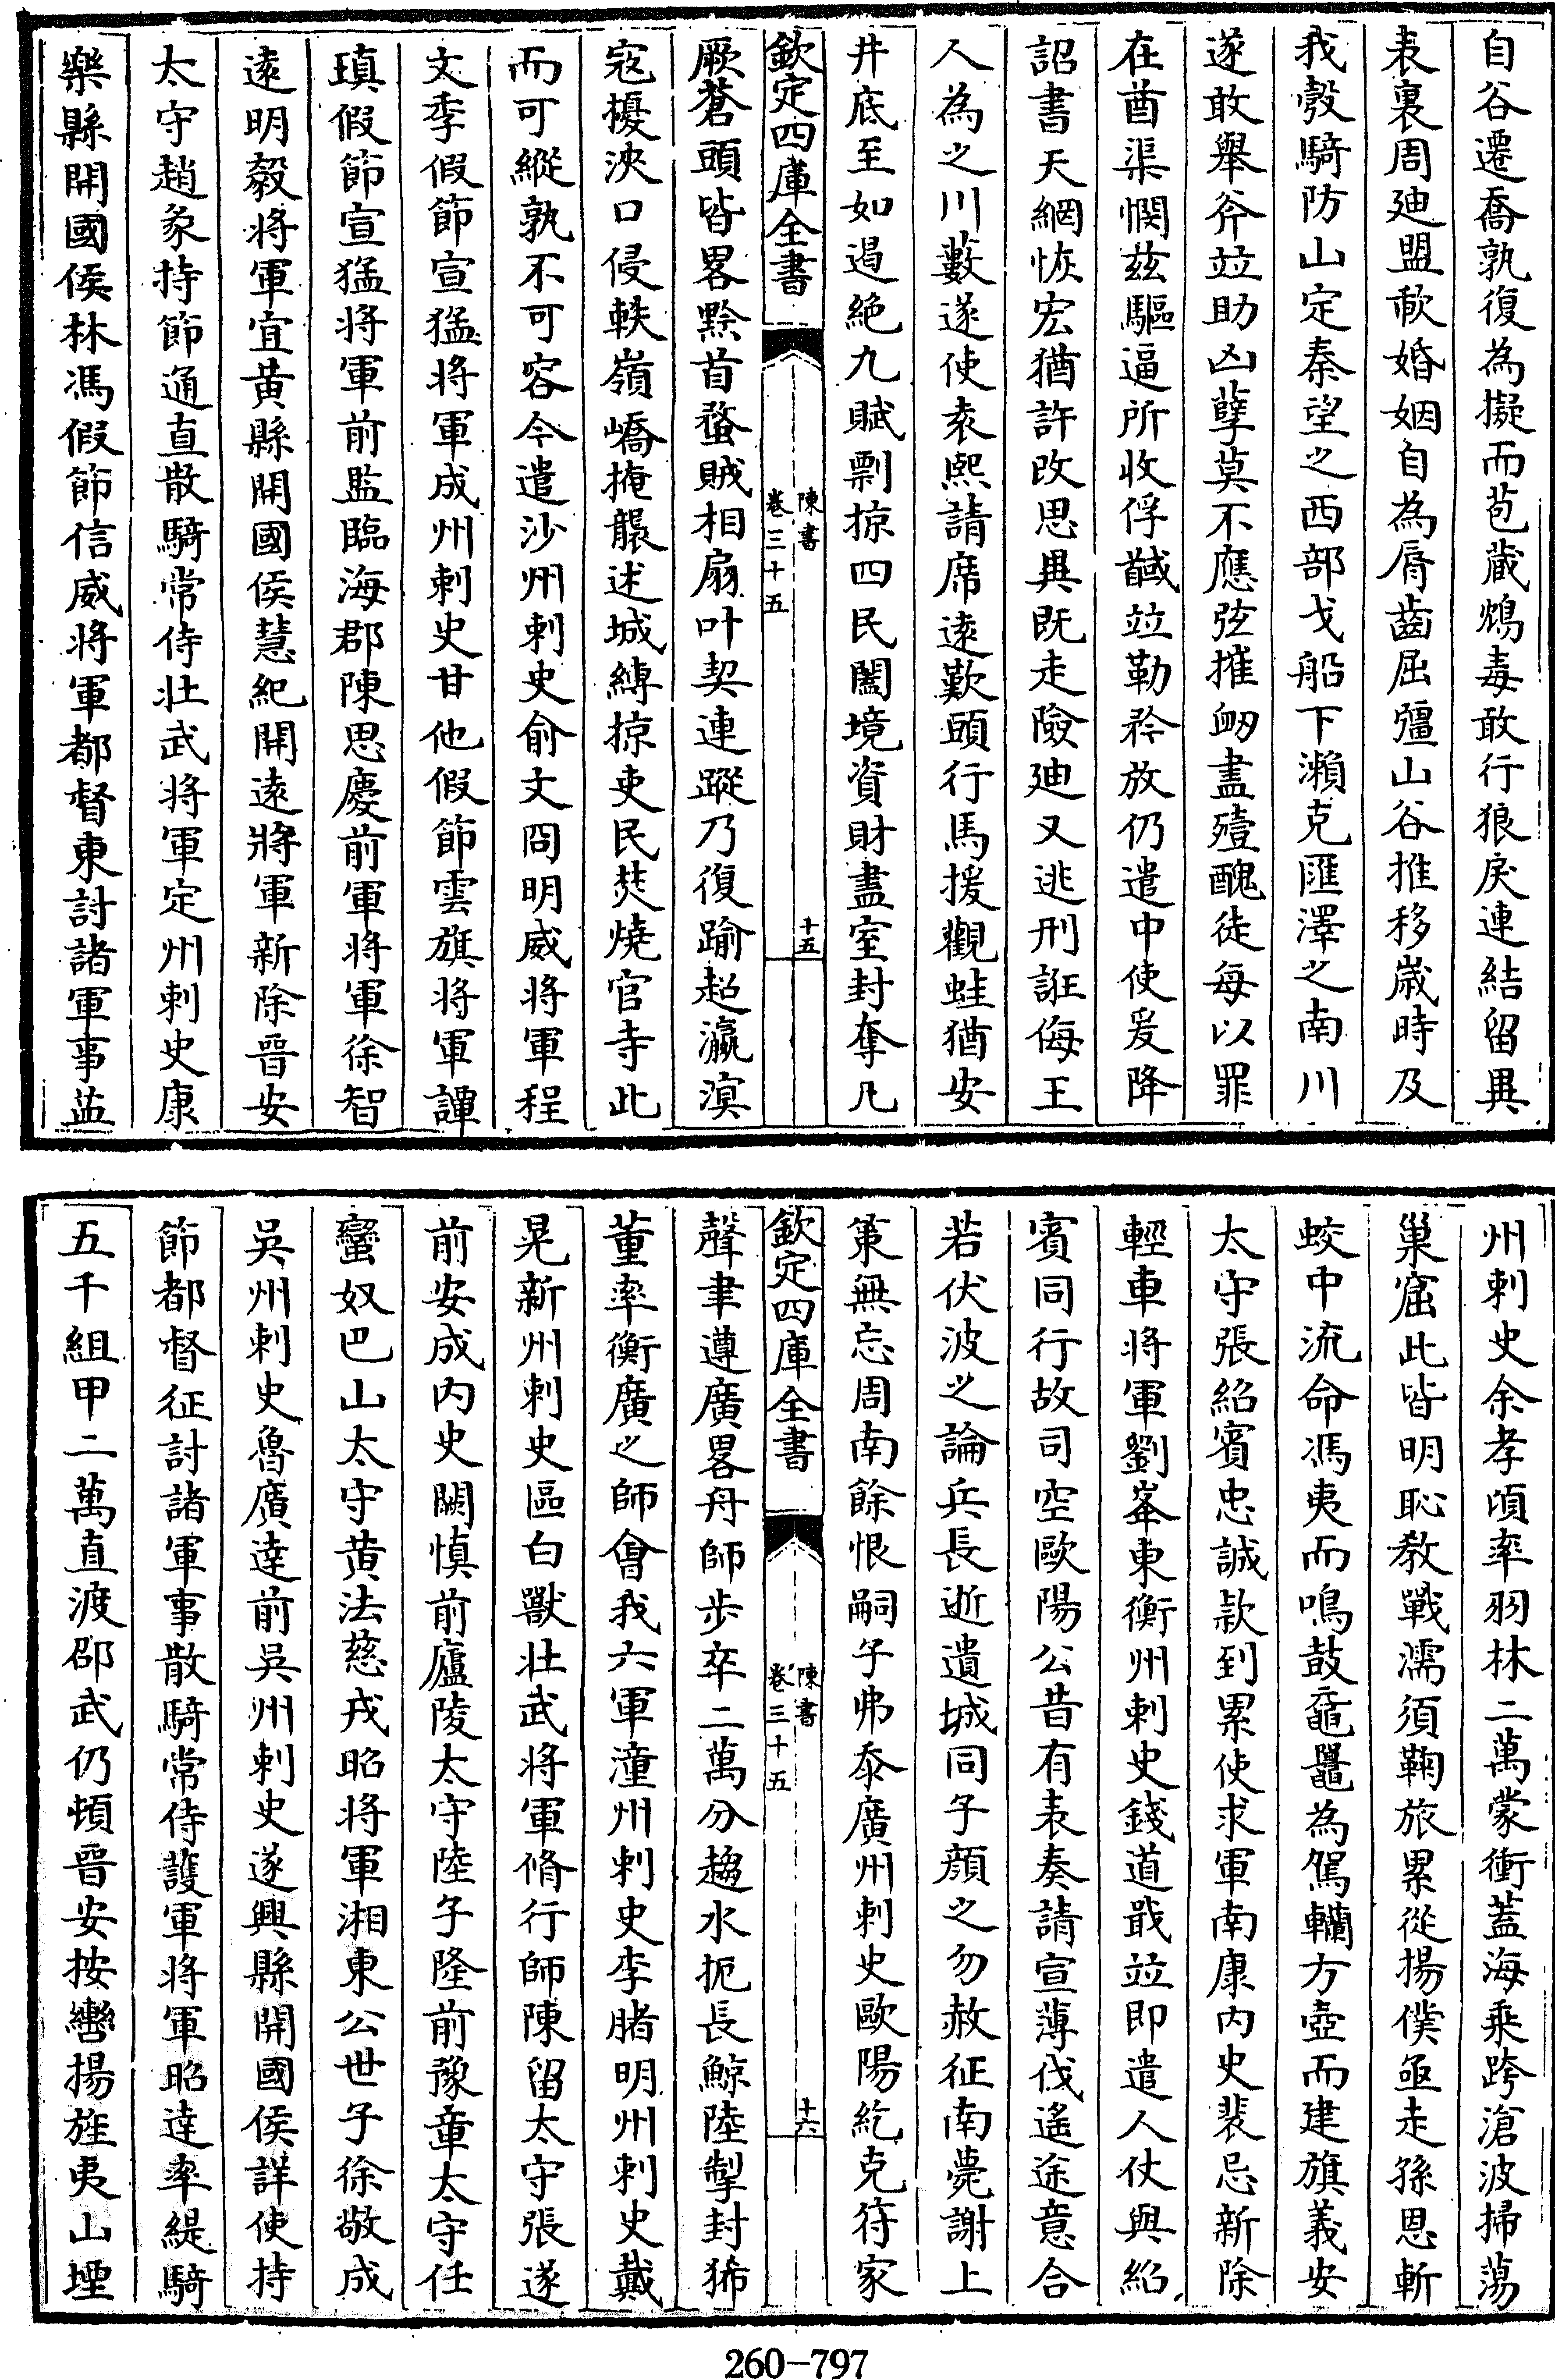 自谷遷喬孰復為擬而苞藏鴆毒敢行狼戾連結留異
表裏周迪盟歃婚姻自為脣齒屈彊山谷推移歲時及
我彀騎防山定秦望之西部戈船下瀨克匯澤之南川
遂敢舉斧竝助凶孽莫不應弦摧衂盡殪醜徒每以罪
在酋渠憫兹驅逼所收俘馘竝勒矜放仍遣中使爰降
詔書天網恢宏猶許改思異既走險廸又逃刑誑侮王
人為之川藪遂使袁熙請席遠歎頭行馬援觀蛙猶安
井底至如遏絶九賦剽掠四民闔境資財盡室封奪凡
欽定四庫全書
陳書
卷三十五
十五
厥蒼頭皆畧黔首蝥賊相扇叶契連蹤乃復踰超瀛溟
寇擾浹口侵軼嶺嶠掩襲述城縛掠吏民焚燒官寺此
而可縱孰不可容今遣沙州剌史俞文冏明威將軍程
文季假節宣猛將軍成州剌史甘他假節雲旗將軍譚
瑱假節宣猛將軍前監臨海郡陳思慶前軍將軍徐智
遠明毅將軍宜黄縣開國侯慧紀開遠將軍新除晉安
太守趙彖持節通直散騎常侍壯武將軍定州剌史康
樂縣開國侯林馮假節信威將軍都督東討諸軍事益
州剌史余孝頃率羽林二萬蒙衝蓋海乘跨滄波掃蕩
巢窟此皆明恥教戰濡須鞠旅累從揚僕亟走孫恩斬
蛟中流命馮夷而鳴鼓黿鼉為駕轥方壺而建旗義安
太守張紹賓忠誠款到累使求軍南康内史裴忌新除
輕車將軍劉峯東衡州剌史錢道戢竝即遣人仗與紹
賓同行故司空歐陽公昔有表奏請宣薄伐遙途意合
若伏波之論兵長逝遺城同子顔之勿赦征南薨謝上
策無忘周南餘恨嗣子弗忝廣州剌史歐陽紇克符家
欽定四庫全書
陳書
卷三十五
十六
聲聿遵廣畧舟師步卒二萬分趨水扼長鯨陸掣封狶
董率衡廣之師會我六軍潼州剌史李䐗明州剌史戴
晃新州剌史區白獸壯武將軍脩行師陳留太守張遂
前安成内史闕慎前廬陵太守陸子隆前豫章太守任
蠻奴巴山太守黄法慈戎昭將軍湘東公世子徐敬成
吳州剌史魯廣達前吳州剌史遂興縣開國侯詳使持
節都督征討諸軍事散騎常侍護軍將軍昭達率緹騎
五千組甲二萬直渡邵武仍頓晉安按轡揚旌夷山堙
260-797